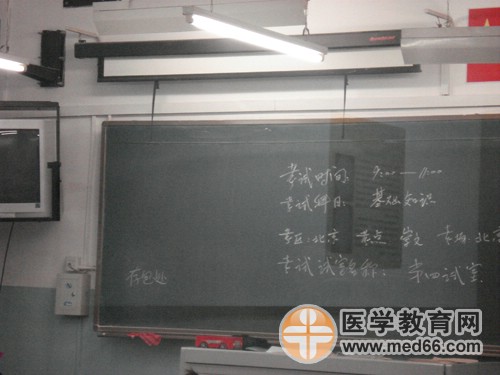 考试时间: 9:00—11:00
考试科目: 基础知识
考区:北京 考点
考试试室名称: 第四试室
存包处
医学教育网
www.med66.com